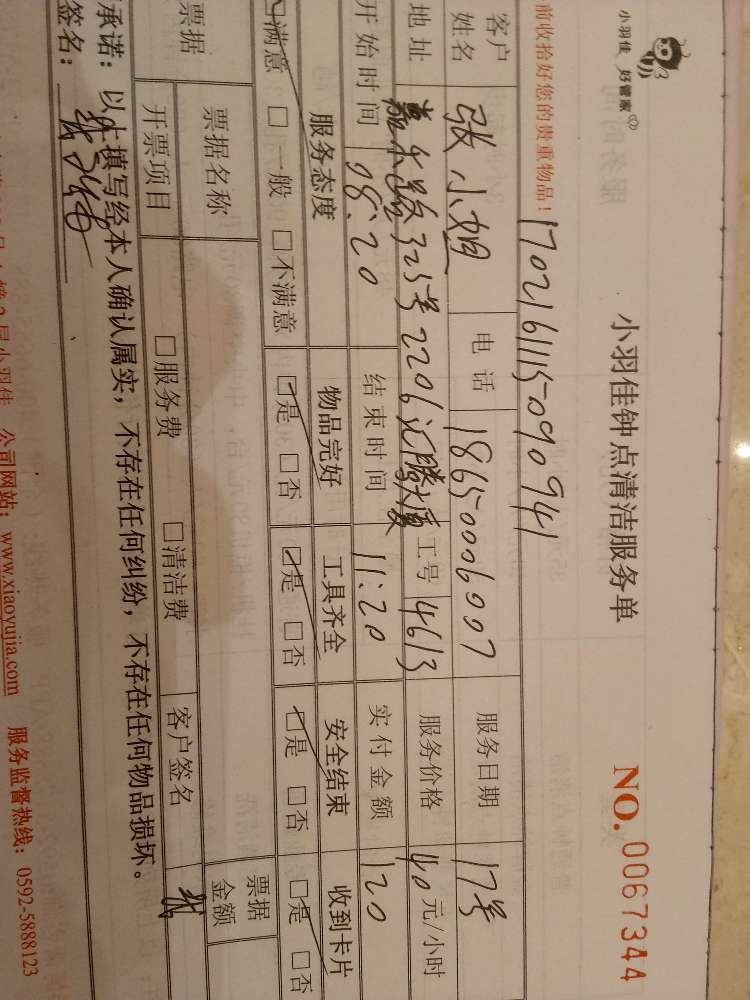 小羽佳 好管家
小羽佳钟点清洁服务单 NO. 0067344
前收拾好您的贵重物品！ 1702161115090941
客户姓名 张小姐 电话 18650006007 服务日期 17号
地址 嘉禾路325号2206汇腾大厦 工号 4613 服务价格 40 元/小时
开始时间 08:20 结束时间 11:20 实付金额 120
服务态度 物品完好 工具齐全 安全结束 收到卡片
☑满意 □一般 □不满意 ☑是 □否 ☑是 □否 ☑是 □否 ☑是 □否
票据 票据名称 □服务费 □清洁费 票据金额
开票项目 客户签名 张
承诺：以上填写经本人确认属实，不存在任何纠纷，不存在任何物品损坏。
签名：
小羽佳 公司网站：www.xiaoyujia.com 服务监督热线：0592-5888123